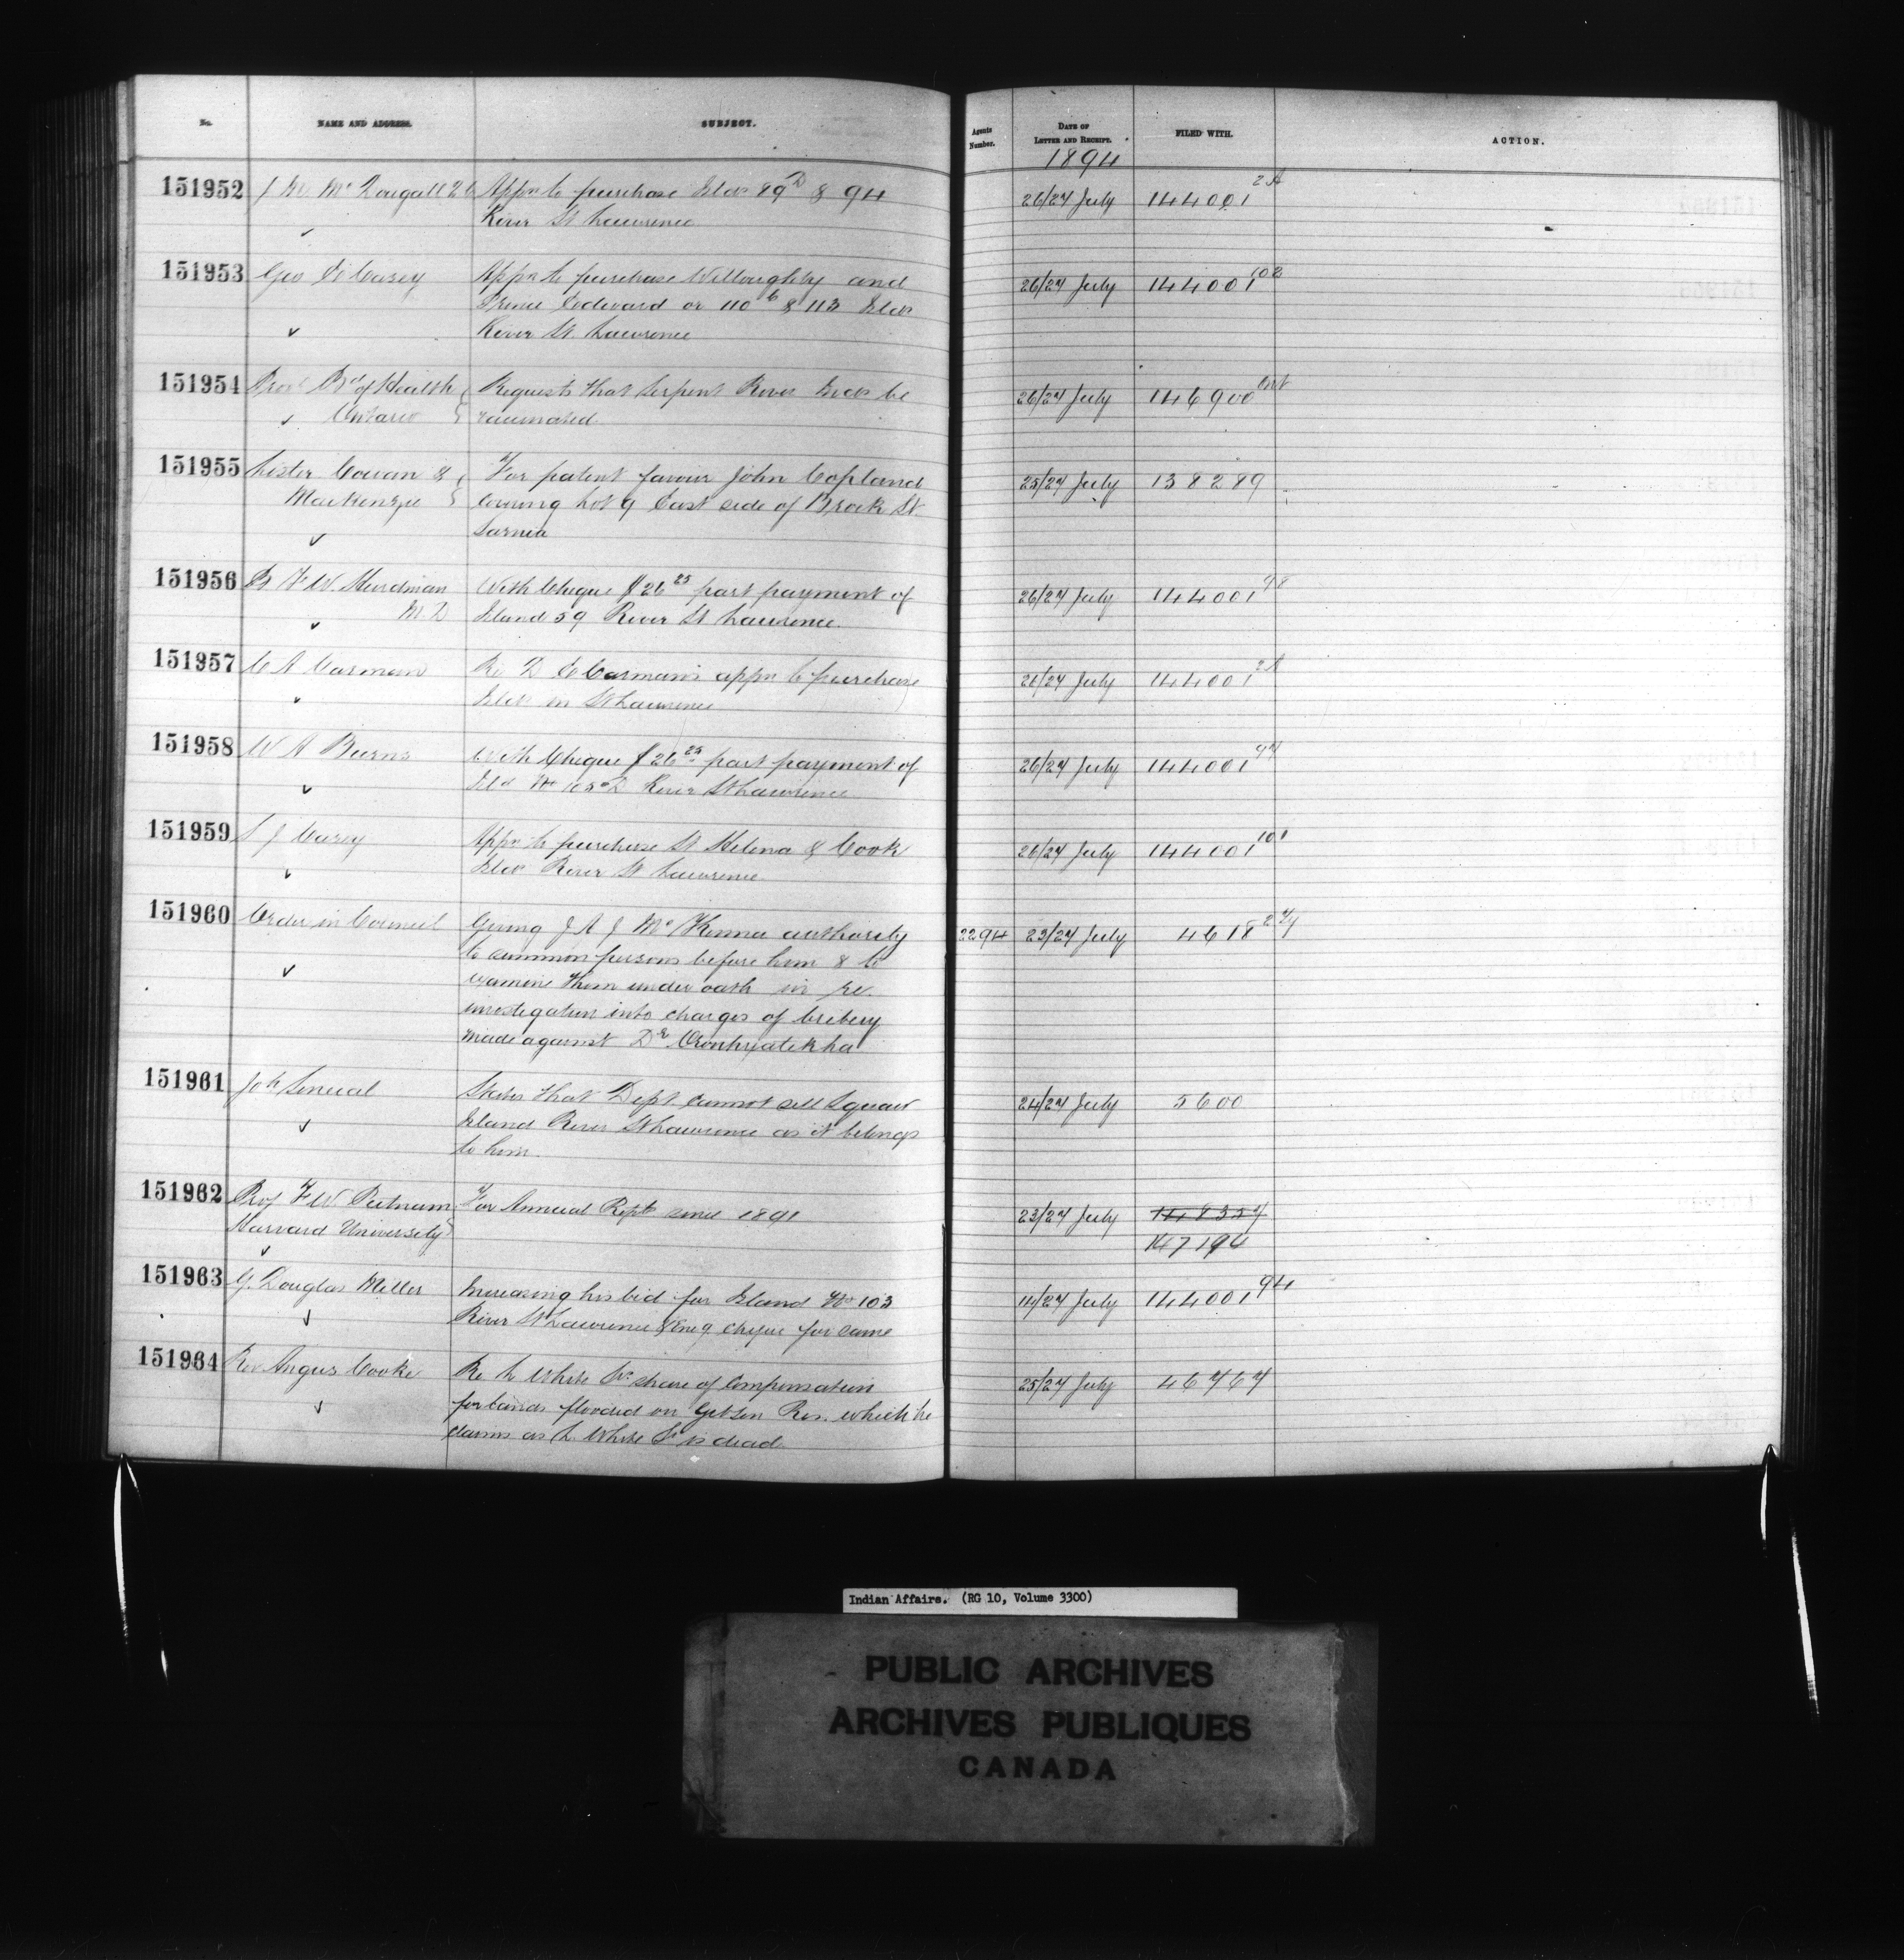 No. NAME AND ADDRESS. SUBJECT. Agents Number. DATE OF LETTER AND RECEIPT. FILED WITH. ACTION.
1894
151952 J M McDougall Appn to purchase Ilds 89 D & 94 26/27 July 144001 2A
River St Lawrence
151953 Geo Casey Appn to purchase Willoughby and 26/27 July 144001 102
Prince Edward or 110 & 113 Ilds
River St. Lawrence
151954 Prov Bd of Health Requests that Serpent River Inds be 26/27 July 146900
Ontario vaccinated
151955 Lister Cowan & For patent favour John Copland 25/27 July 138289
MacKenzie covering Lot 9 East side of Brock St
Sarnia
151956 B F W Hurdman With Cheque $26 25 part payment of 26/27 July 144001 98
M.D Island 59 River St Lawrence
151957 C A Carman Re D C Carman's appn to purchase 26/27 July 144001 2A
Ilds in St Lawrence
151958 W A Burns With Cheque $26 25 part payment of 26/27 July 144001 97
Ild No River St Lawrence
151959 S J Casey Appn to purchase St Helena & Cook 26/27 July 144001 101
Ilds River St Lawrence
151960 Order in Council Giving J A J McKenna authority 2294 23/27 July 4618
to summon persons before him & to
examine them under oath in re.
investigation into charges of bribery
made against Dr Oronhyatekha
151961 States that Dept cannot sell Squaw 24/27 July 5600
Island River St Lawrence as it belongs
to him.
151962 Prof F W Putnam For Annual Repts since 1891 23/27 July
Harvard University 147194
151963 G. Douglas Miller Increasing his bid for Island No 103 14/27 July 144001 94
River St Lawrence & enc g cheque for same
151964 Rev Angus Cooke Re L White Sr share of Compensation 25/27 July 46767
for lands flooded on Gibson Res. which he
claims as L. White Sr is dead.
Indian Affairs. (RG 10, Volume 3300)
PUBLIC ARCHIVES
ARCHIVES PUBLIQUES
CANADA